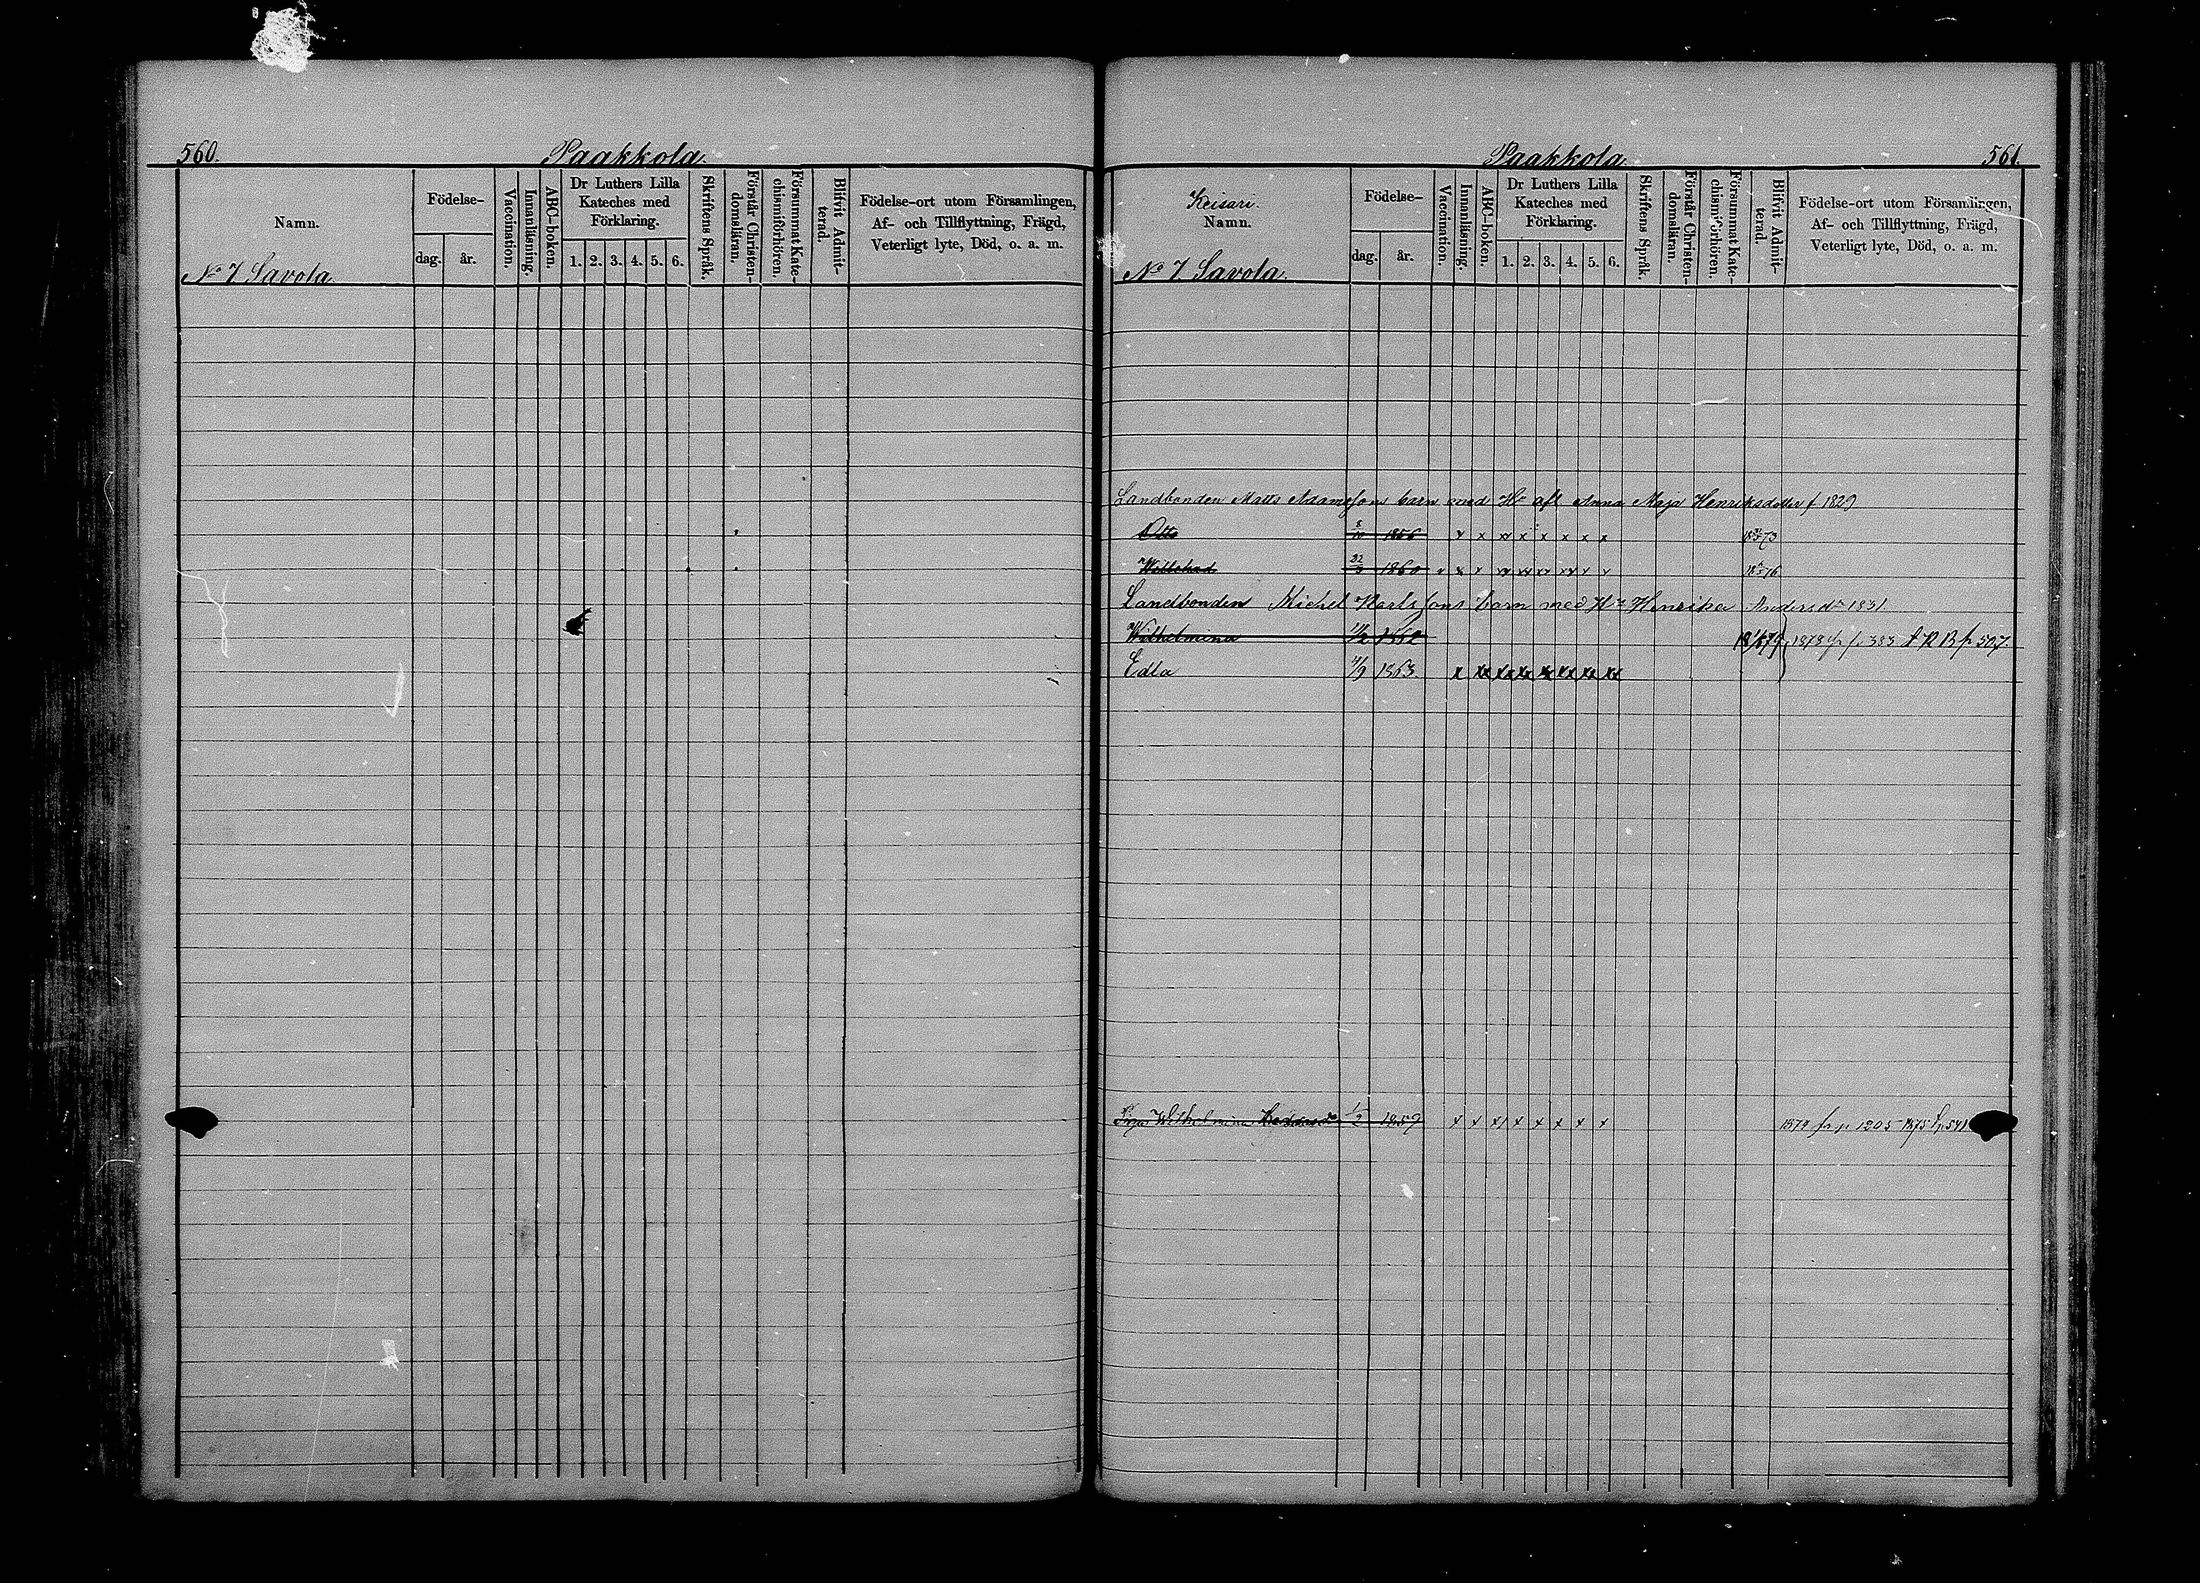 560. Paakkola.
Namn.
Födelse-
dag. år.
Vaccination.
Innanläsning.
ABC-boken.
Dr Luthers Lilla
Kateches med
Förklaring.
1. 2. 3. 4. 5. 6.
Skriftens Språk.
Förstår Christen-
domsläran.
Försummat Kate-
chismiförhören.
Blifvit Admit-
terad.
Födelse-ort utom Församlingen,
Af- och Tillflyttning, Frägd,
Veterligt lyte, Död, o. a. m.
No 7 Savola.
Paakkola. 561.
Keisari.
Namn.
Födelse-
dag. år.
Vaccination.
Innanläsning.
ABC-boken.
Dr Luthers Lilla
Kateches med
Förklaring.
1. 2. 3. 4. 5. 6.
Skriftens Språk.
Förstår Christen-
domsläran.
Försummat Kate-
chismiförhören.
Blifvit Admit-
terad.
Födelse-ort utom Församlingen,
Af- och Tillflyttning, Frägd,
Veterligt lyte, Död, o. a. m.
No 7 Savola.
Landbonden Matts Adamssons barn med Hu afl Anna Maja Henriksdotter f 1829
Otto 1856 x x xx x x x x x
1860 x x x xx xx xx xx x x
Landbonden Michel Karlssons barn med Hu Henrika Andersdr 1831
Wilhelmina 11/2 1878 fr p. 383 t R B p 507.
Edla 4/9 1863. x xx xx xx xx xx xx xx
Pigan Wilhelmina 1/2 1859 x x x x x x x x 1879 fr p 1205 1875 t p 541